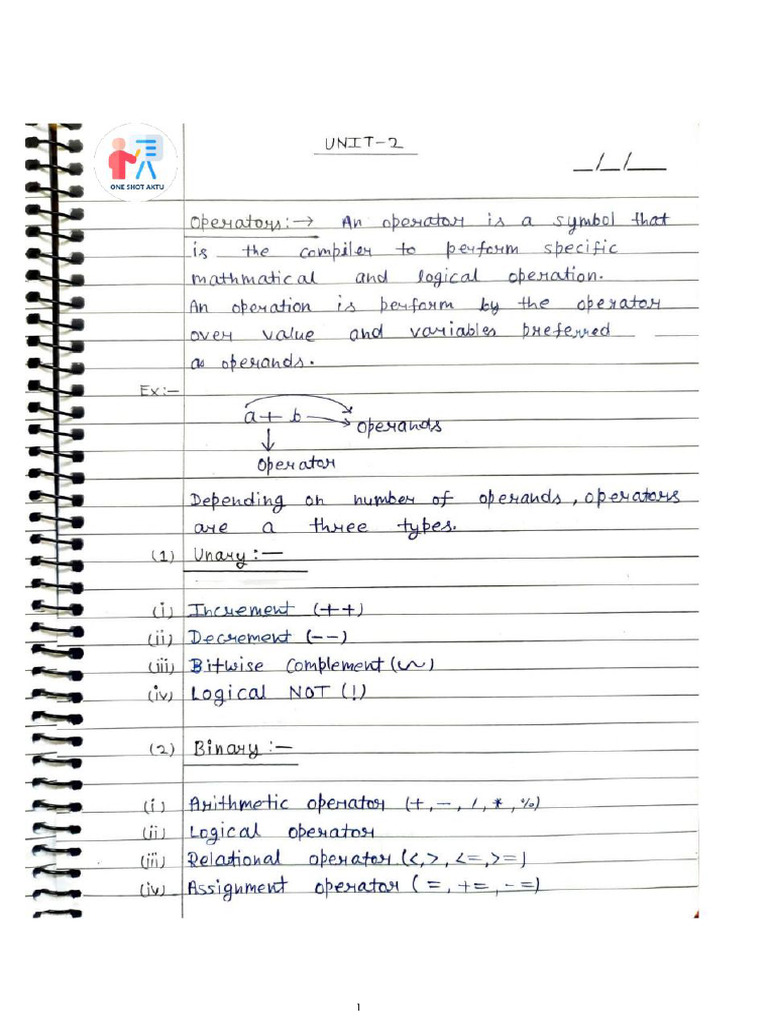 ONE SHOT AKTU
UNIT-2
_/_/__
Operators:→ An operator is a symbol that
is the compiler to perform specific
mathmatical and logical operation.
An operation is perform by the operator
over value and variables preferred
as operands.
Ex:-
a + b → operands
↓
operator
Depending on number of operands, operators
are a three types.
(1) Unary:-
(i) Increment (++)
(ii) Decrement (--)
(iii) Bitwise Complement (~)
(iv) Logical NOT (!)
(2) Binary:-
(i) Arithmetic operator (+, -, /, *, %)
(ii) Logical operator
(iii) Relational operator (<, >, <=, >=)
(iv) Assignment operator ( =, +=, -=)
1